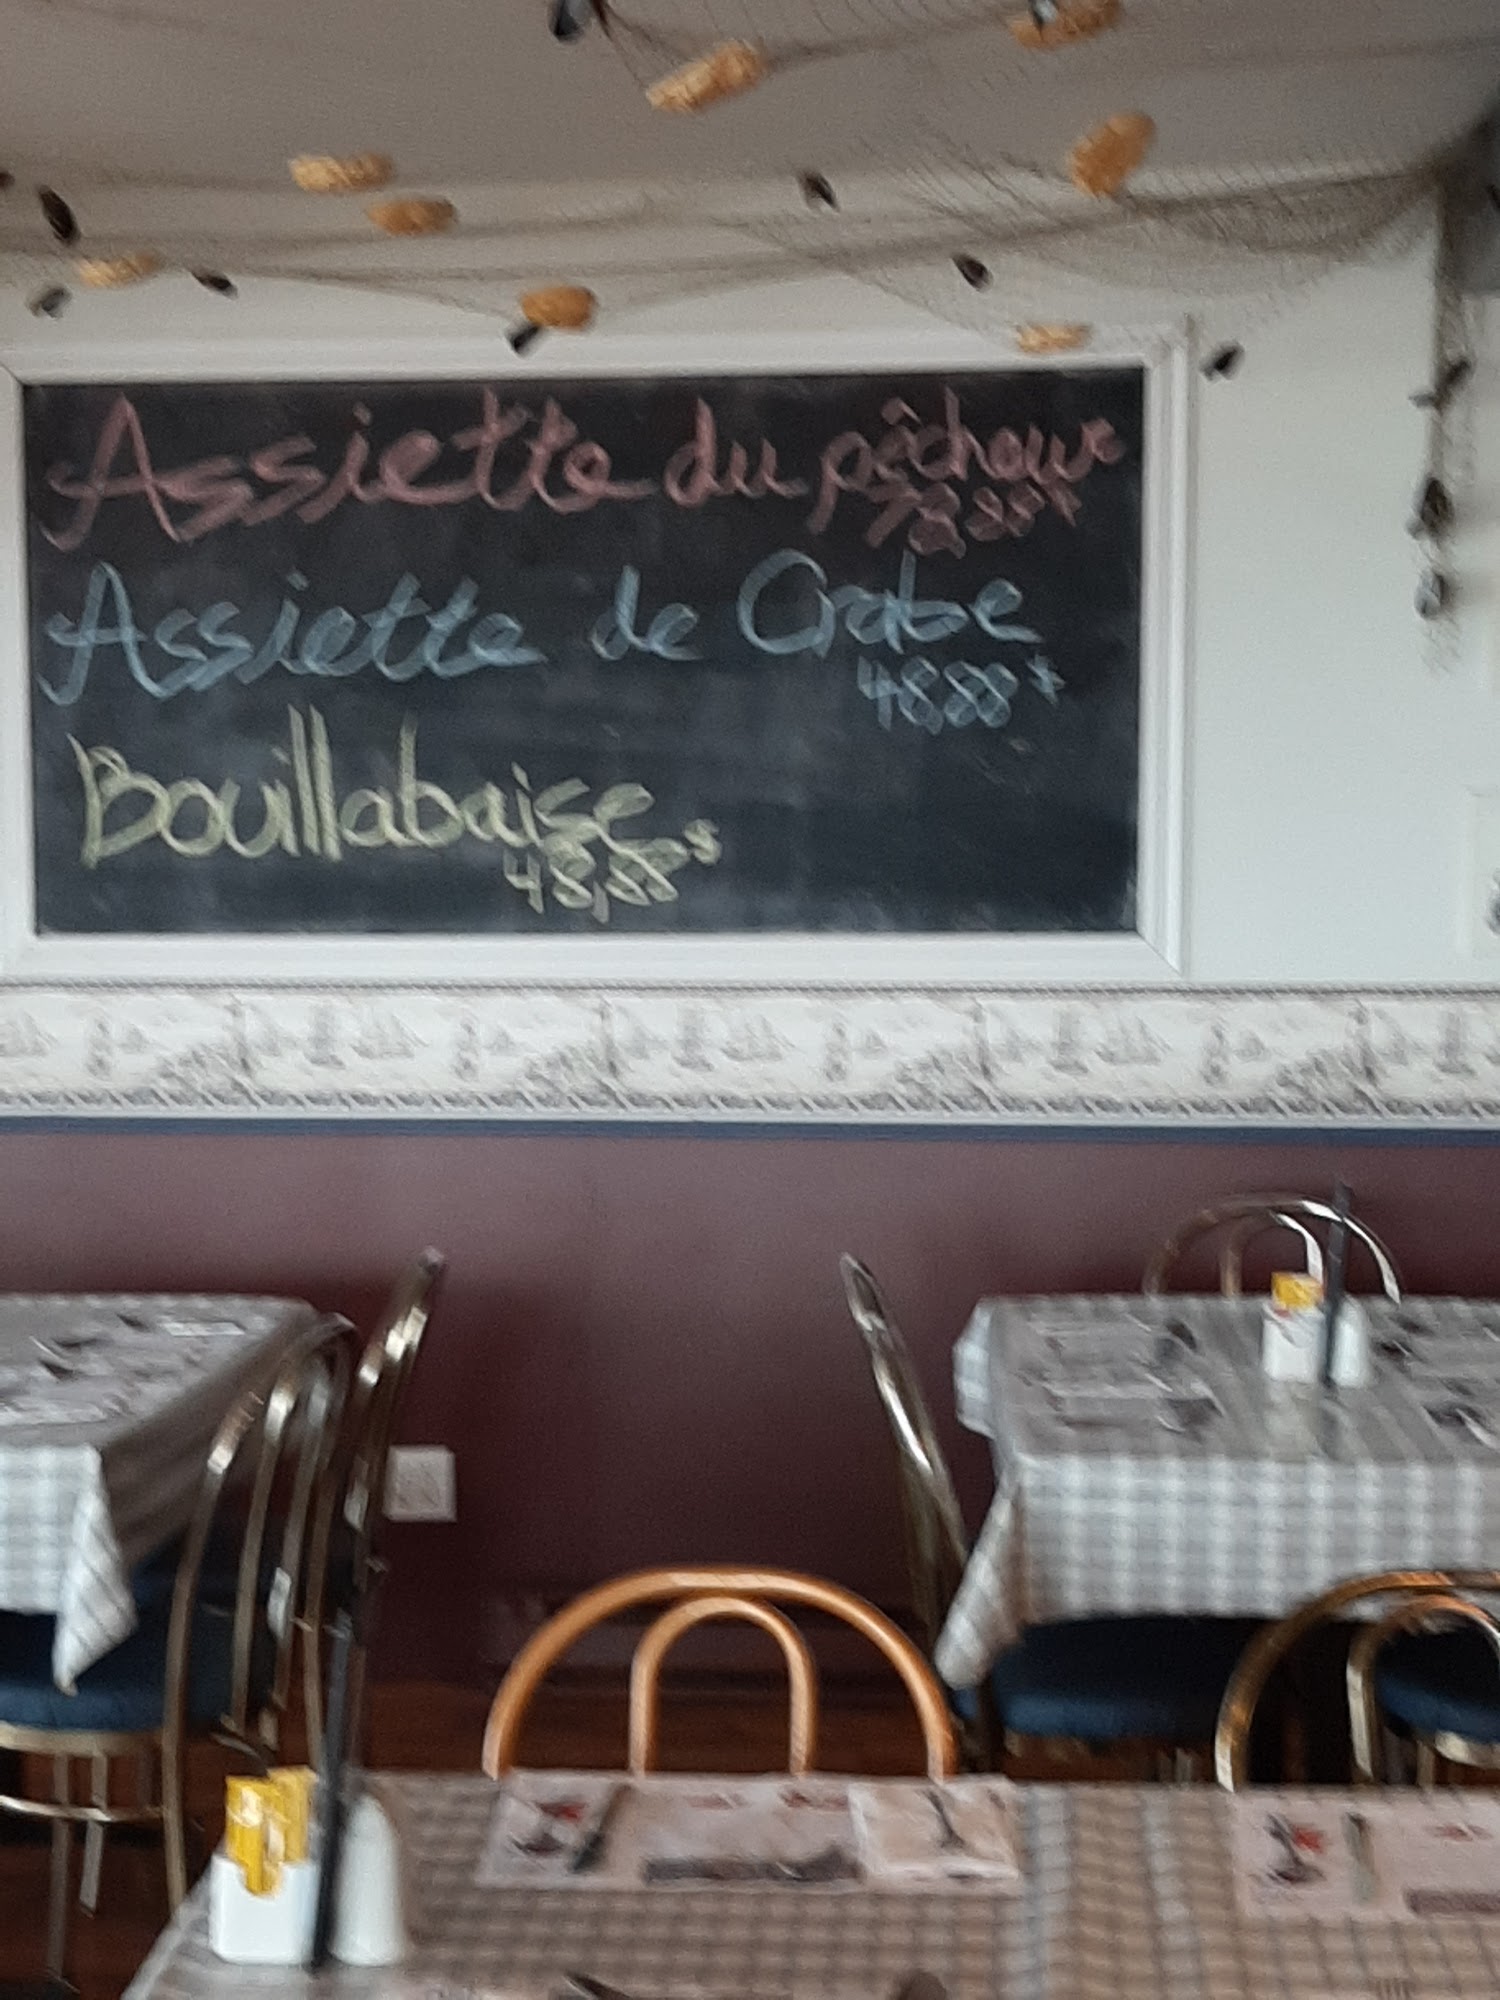 Assiette du pêcheur
78,88$
Assiette de Crabe
48,88$
Bouillabaise
48,88$